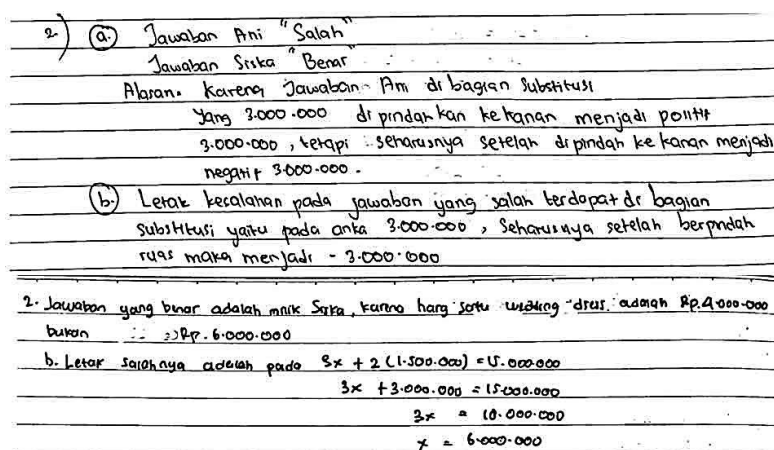 2) a. Jawaban Ani "Salah"
Jawaban Siska "Benar"
Alasan. Karena Jawaban Ani di bagian Substitusi
Yang 3.000.000 di pindahkan ke kanan menjadi positif
3.000.000, tetapi seharusnya setelah di pindah ke kanan menjadi
negatif 3.000.000.
b. Letak kesalahan pada jawaban yang salah terdapat di bagian
substitusi yaitu pada anka 3.000.000, Seharusnya setelah berpindah
ruas maka menjadi - 3.000.000
2. Jawaban yang benar adalah Siska, karena harg satu dres adalah Rp.4.000.000
bukan Rp. 6.000.000
b. Letak salahnya adalah pada 3x + 2 (1.500.000) = 15.000.000
3x + 3.000.000 = 15.000.000
3x = 18.000.000
x = 6.000.000